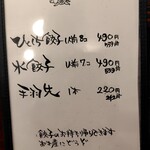 ひとくち餃子 1人前8コ 490円
水餃子 1人前7コ 490円
手羽先 1本 220円
餃子のお持ち帰りできます
お土産にどうぞ